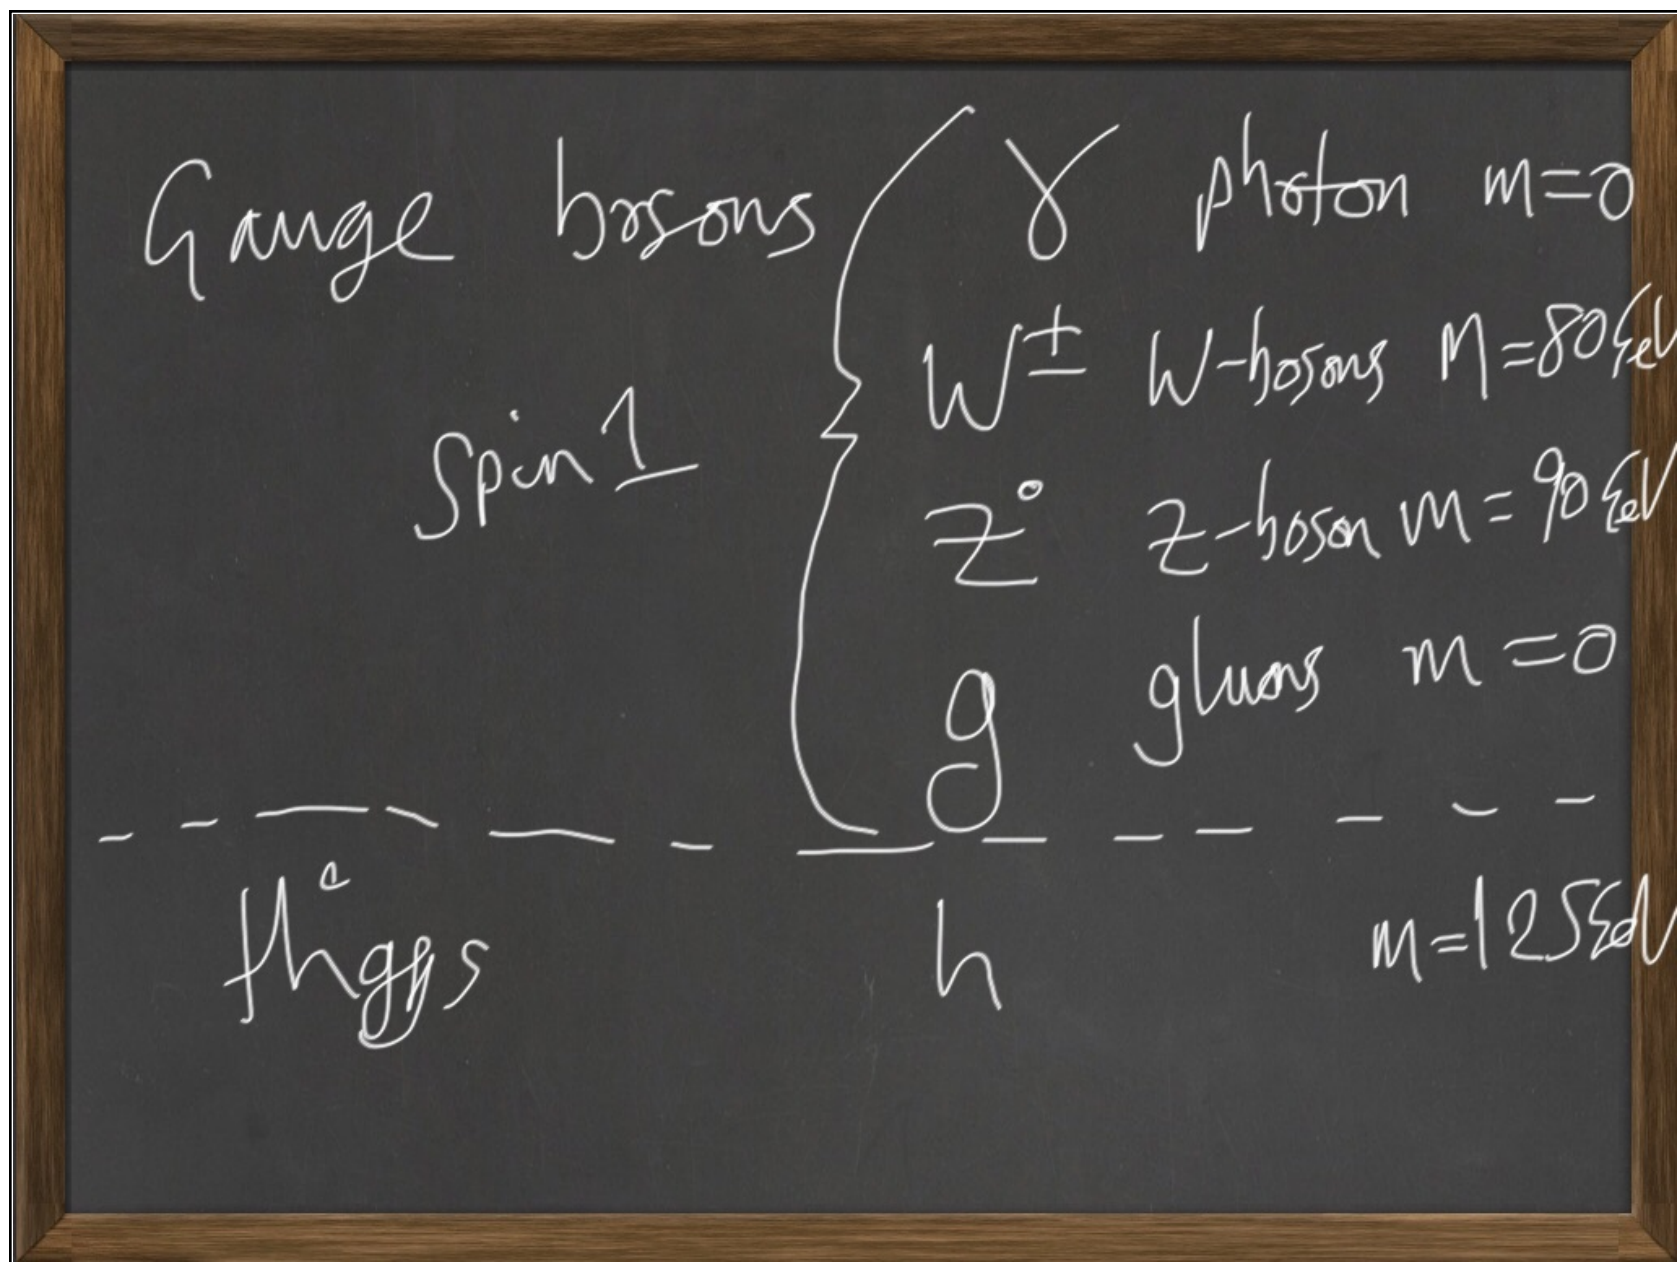 Gauge bosons γ photon m=0
W± W-bosons M=80GeV
Spin 1
Z⁰ Z-boson m=90GeV
g gluons m=0
Higgs h m=125GeV